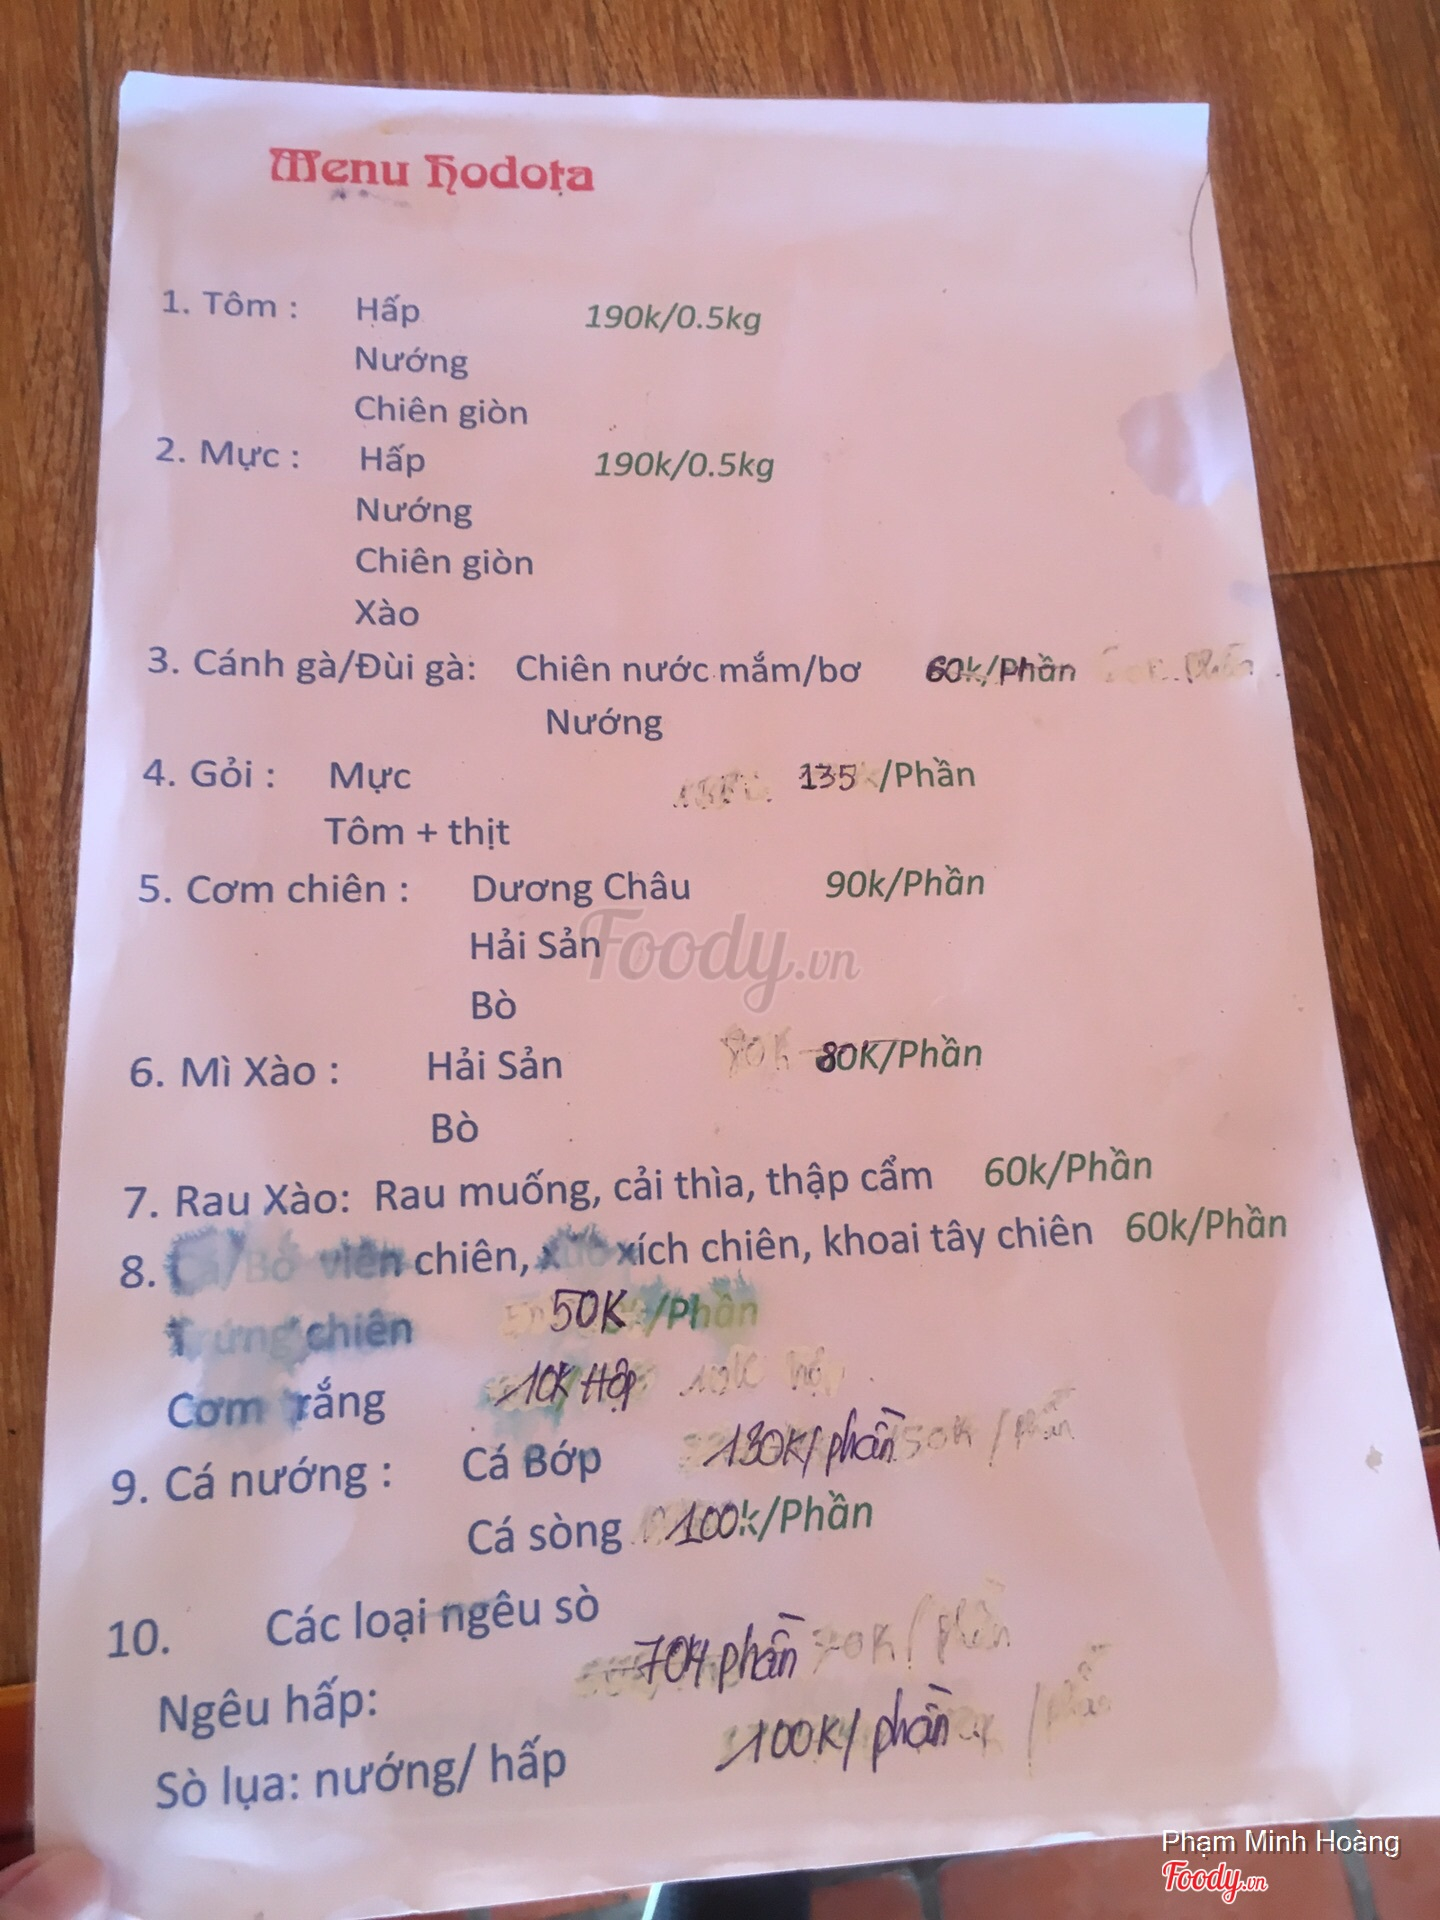 Menu Hodota
1. Tôm : Hấp 190k/0.5kg
Nướng
Chiên giòn
2. Mực : Hấp 190k/0.5kg
Nướng
Chiên giòn
Xào
3. Cánh gà/Đùi gà: Chiên nước mắm/bơ 60k/Phần
Nướng
4. Gỏi : Mực 135 /Phần
Tôm + thịt
5. Cơm chiên : Dương Châu 90k/Phần
Hải Sản
Foody.vn
Bò
6. Mì Xào : Hải Sản 80K/Phần
Bò
7. Rau Xào: Rau muống, cải thìa, thập cẩm 60k/Phần
8. Cá/Bò viên chiên, xúc xích chiên, khoai tây chiên 60k/Phần
Trứng chiên 50K/Phần
Cơm trắng 10K Hộp
9. Cá nướng : Cá Bớp 130K/phần
Cá sòng 100k/Phần
10. Các loại ngêu sò
Ngêu hấp: 70K/phần 70K/phần
Sò lụa: nướng/ hấp 100K/phần
Phạm Minh Hoàng
Foody.vn